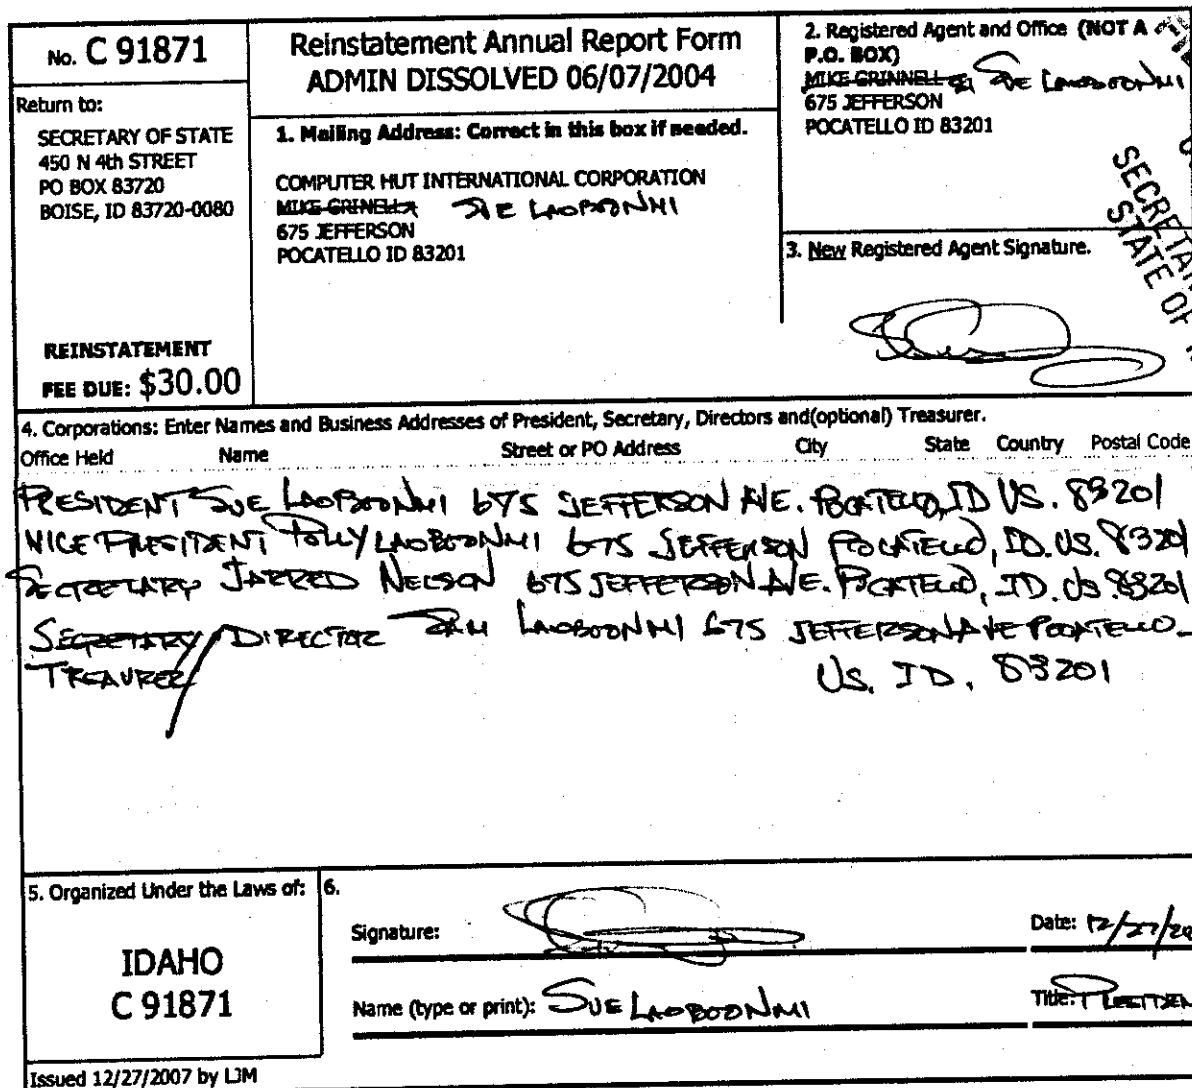 No. C 91871
Return to:
SECRETARY OF STATE
450 N 4th STREET
PO BOX 83720
BOISE, ID 83720-0080
REINSTATEMENT
FEE DUE: $30.00
Reinstatement Annual Report Form
ADMIN DISSOLVED 06/07/2004
1. Mailing Address: Correct in this box if needed.
COMPUTER HUT INTERNATIONAL CORPORATION
MIKE GRINELLA SUE LAOBOONMI
675 JEFFERSON
POCATELLO ID 83201
2. Registered Agent and Office (NOT A
P.O. BOX)
MIKE GRINNELL SUE LAOBOONMI
675 JEFFERSON
POCATELLO ID 83201
SECRETAR
STATE OF
3. New Registered Agent Signature.
4. Corporations: Enter Names and Business Addresses of President, Secretary, Directors and(optional) Treasurer.
Office Held Name Street or PO Address City State Country Postal Code
PRESIDENT SUE LAOBOONMI 675 JEFFERSON AVE. POCATELLO, ID US. 83201
VICE PRESIDENT POLLY LAOBOONMI 675 JEFFERSON POCATELLO, ID. US. 83201
SECRETARY JARRED NELSON 675 JEFFERSON AVE. POCATELLO, ID. US. 83201
SECRETARY/DIRECTOR SAM LAOBOONMI 675 JEFFERSON AVE POCATELLO
TREAURER US. ID. 83201
5. Organized Under the Laws of:
IDAHO
C 91871
6.
Signature:
Date: 12/27/20
Name (type or print): SUE LAOBOONMI
Title: PRESIDEN
Issued 12/27/2007 by LJM